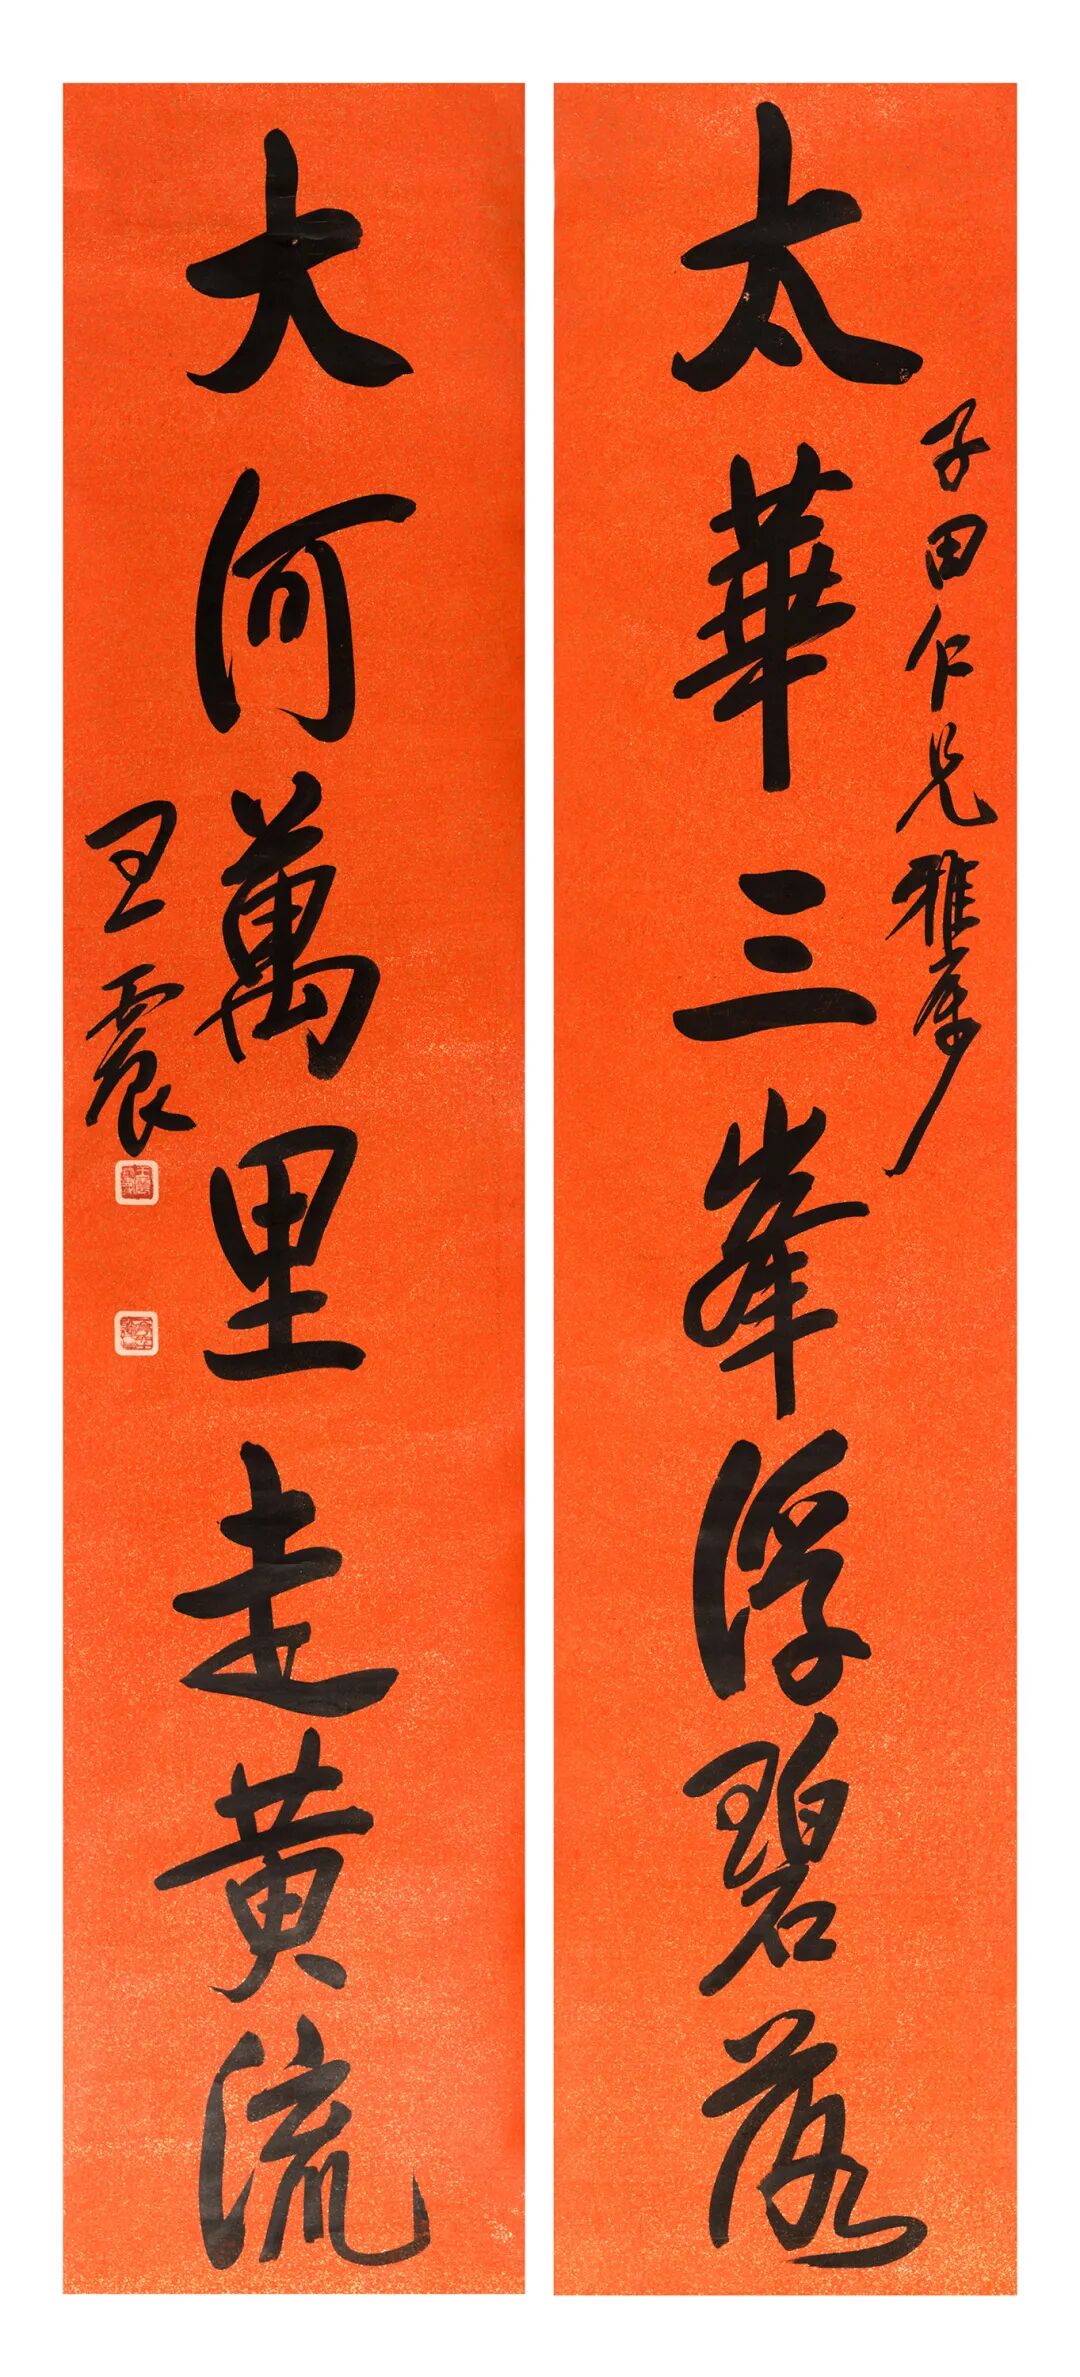 太華三峯浮碧落
子田仁兄雅屬
大河萬里走黄流
王震